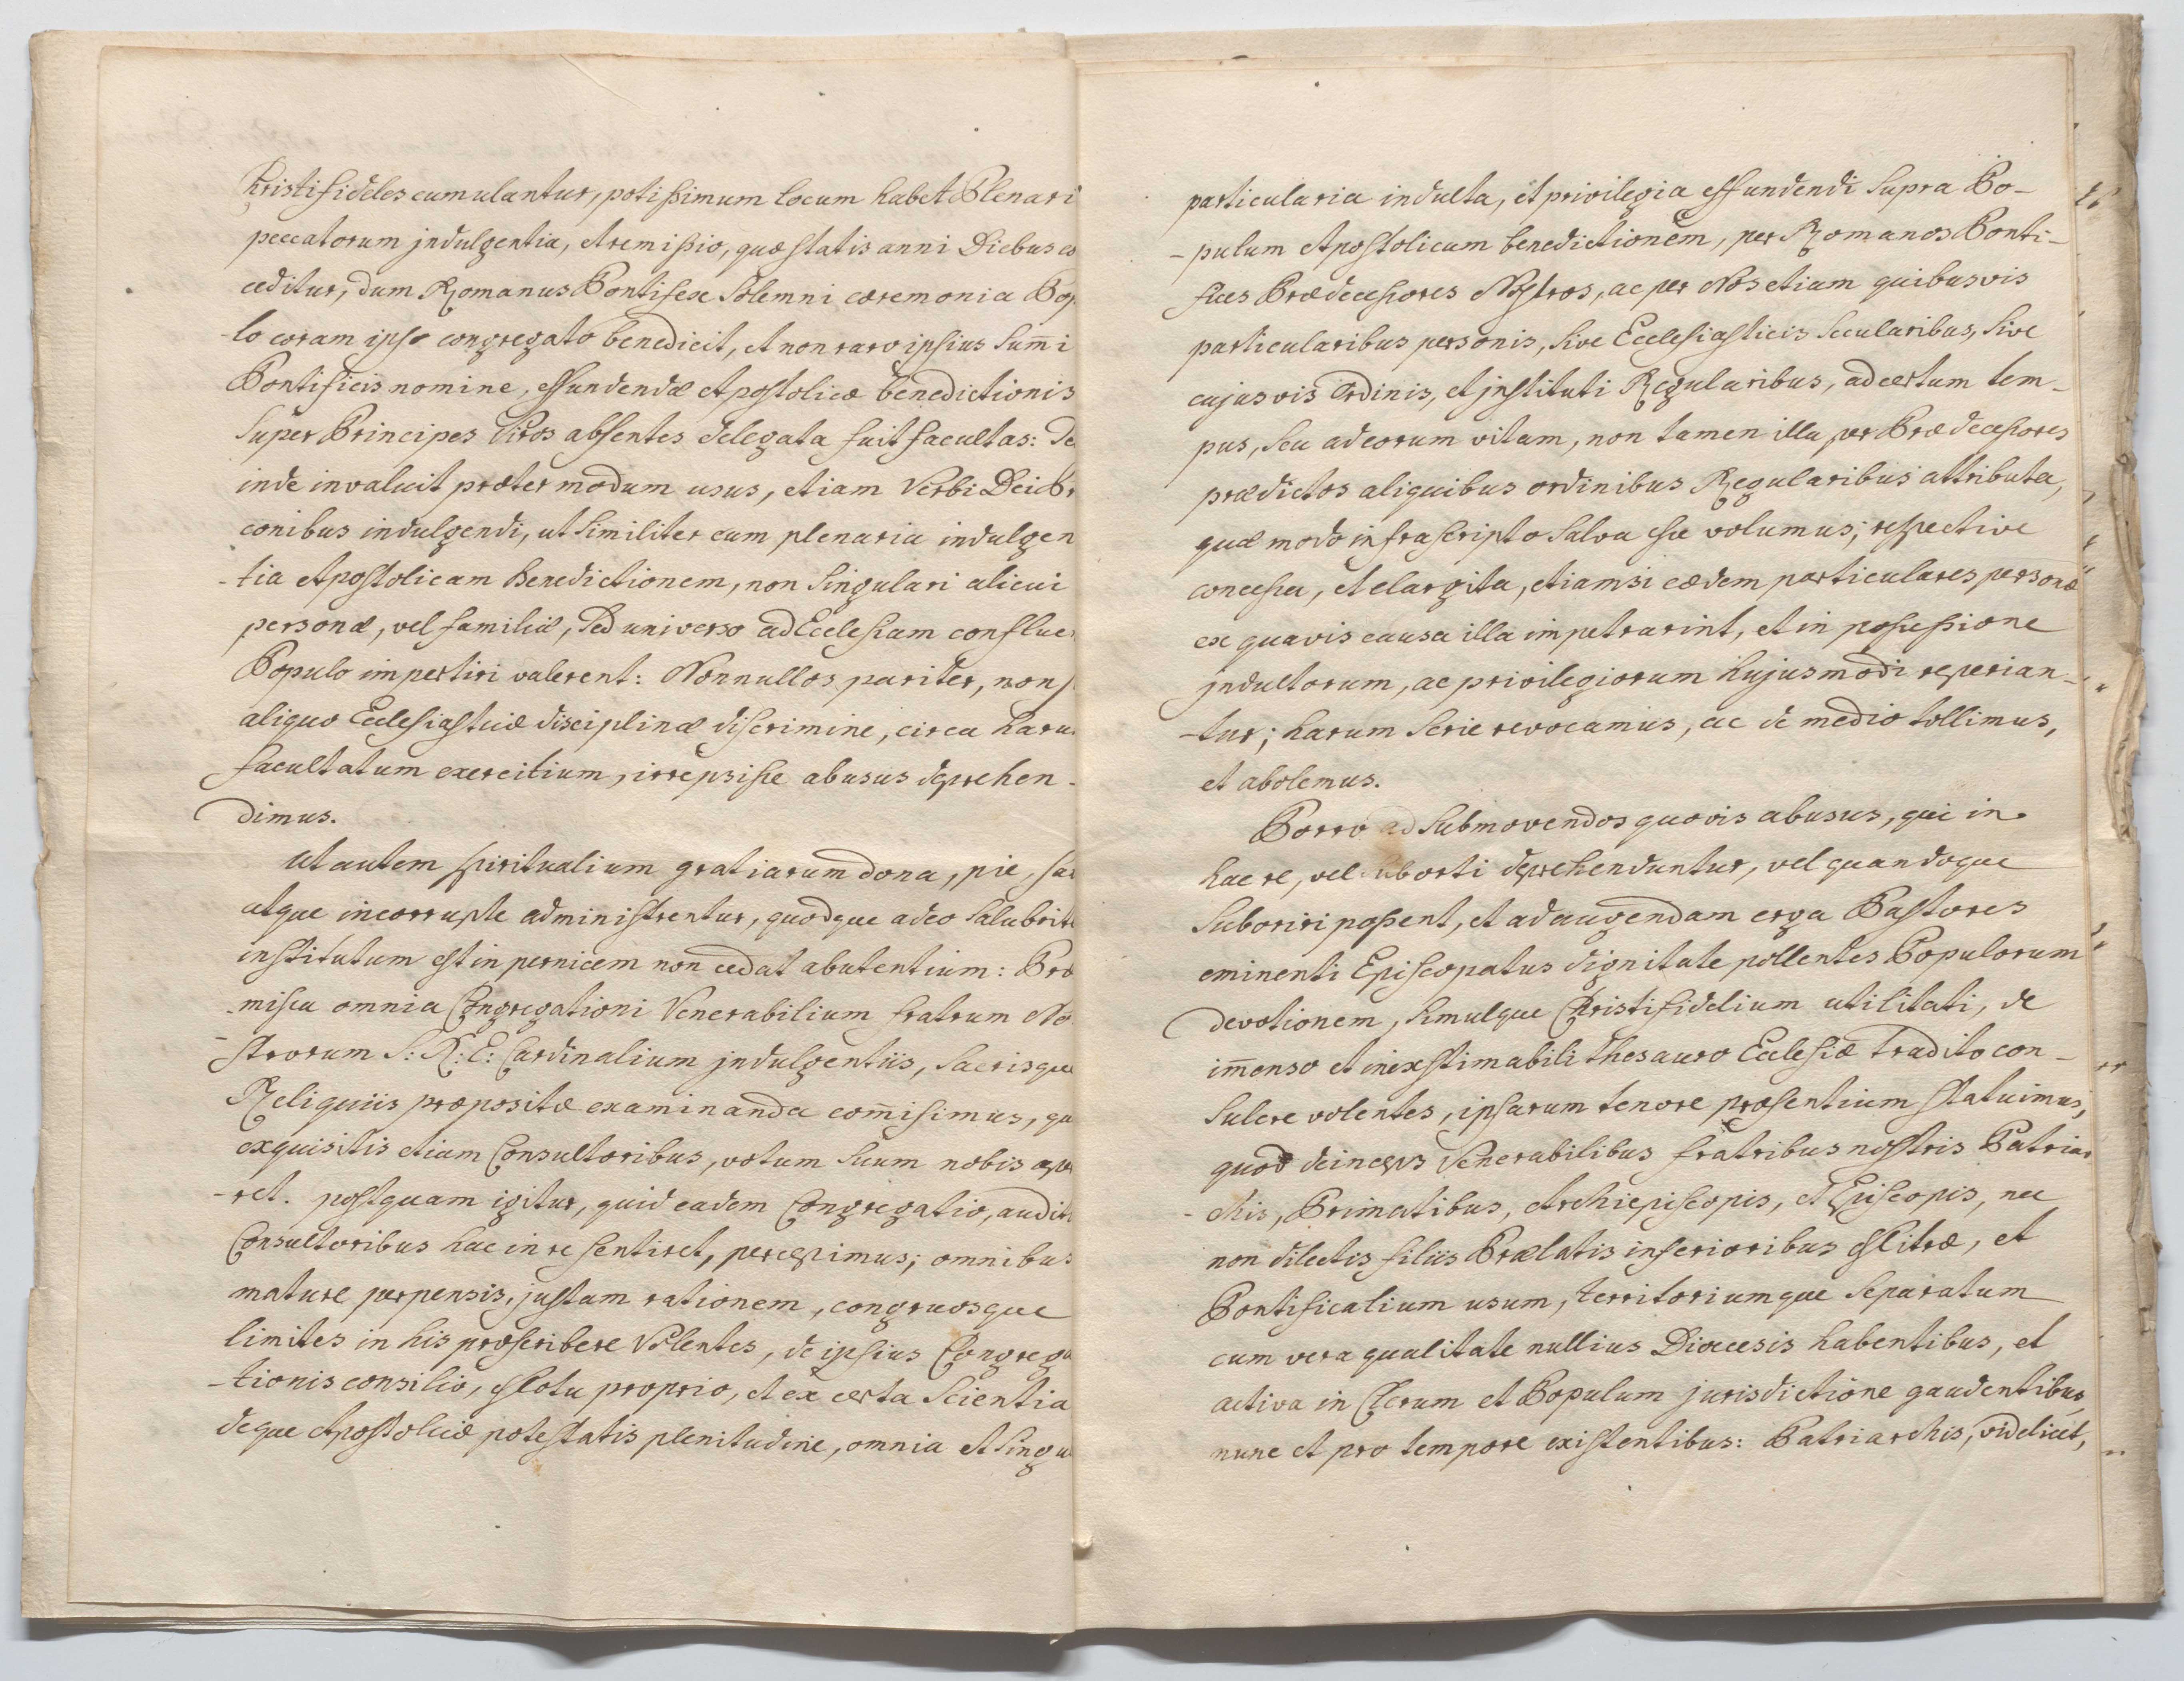 Christifideles cumulantur, potissimum locum habet Plenari
peccatorum jndulgentia, et remissio, quæ statis anni Diebus co
ceditur, dum Romanus Pontifex Solemni cæremonia Pop
-lo coram ipso congregato benedicit, et non raro ipsius Sum̄i
Pontificis nomine, effundendæ Apostolicæ benedictionis
Super Principes Viros absentes delegata fuit facultas: De
inde invaluit præter modum usus, etiam Verbi Dei Pr
conibus indulgendi, ut Similiter cum plenaria indulgen
-tia Apostolicam Benedictionem, non Singulari alicui
personæ, vel familiæ, Sed universo ad Ecclesiam conflue
Populo impertiri valerent: Nonnullos pariter, non
aliquo Ecclesiasticæ disciplinæ discrimine, circa haru
facultatum exercitium, irrepsisse abusus deprehen-
dimus.
Ut autem spiritualium gratiarum dona, pie, sa
atque incorrupte administrentur, quodque adeo Salubrit
institutum est in pernicem non cedat abutentium: Præ
-missa omnia Congregationi Venerabilium fratrum No
-strorum S: R: E: Cardinalium jndulgentiis, Sacrisque
Reliquiis præpositæ examinanda com̄isimus, qu
exquisitis etiam Consultoribus, votum Suum nobis ape
-ret. postquam igitur, quid eadem Congregatio, audit
Consultoribus hac in re sentiret, percepimus; omnibus
mature perpensis, justam rationem, congruosque
limites in his præscribere Volentes, de ipsius Congrega
-tionis consilio, Motu proprio, et ex certa Scientia
deque Apostolicæ potestatis plenitudine, omnia et Singu
particularia indulta, et privilegia effundendi Supra Po-
-pulum Apostolicam benedictionem, per Romanos Ponti-
fices Prædecessores Nostros, ac per Nos etiam quibusvis
particularibus personis, Sive Ecclesiasticis Secularibus, Sive
cujusvis Ordinis, et jnstituti Regularibus, ad certum tem-
pus, Seu ad eorum vitam, non tamen illa per Prædecessores
prædictos aliquibus ordinibus Regularibus attributa,
quæ modo infrascripto Salva esse volumus; respective
concessa, et elargita, etiamsi eædem particulares personæ
ex quavis causa illa impetrarint, et in possessione
jndultorum, ac privilegiorum hujusmodi reperian-
-tur; harum Serie revocamus, ac de medio tollimus,
et abolemus.
Porro ad Submovendos quovis abusus, qui in
hac re, vel aborti deprehenduntur, vel quandoque
Suboriri possent, et ad augendam erga Pastores
eminenti Episcopatus dignitate pollentes Populorum
devotionem, Simulque Christifidelium utilitati, de
im̄enso et inexstimabili thesauro Ecclesiæ tradito con-
Sulere volentes, ipsarum tenore præsentium Statuimus,
quod deinceps Venerabilibus fratribus nostris Patriar
-chis, Primatibus, Archiepiscopis, et Episcopis, nec
non dilectis filiis Prælatis inferioribus Mitræ, et
Pontificalium usum, territoriumque Separatum
cum vera qualitate nullius Diœcesis habentibus, et
activa in Clerum et Populum jurisdictione gaudentibus,
nunc et pro tempore existentibus: Patriarchis, videlicet,